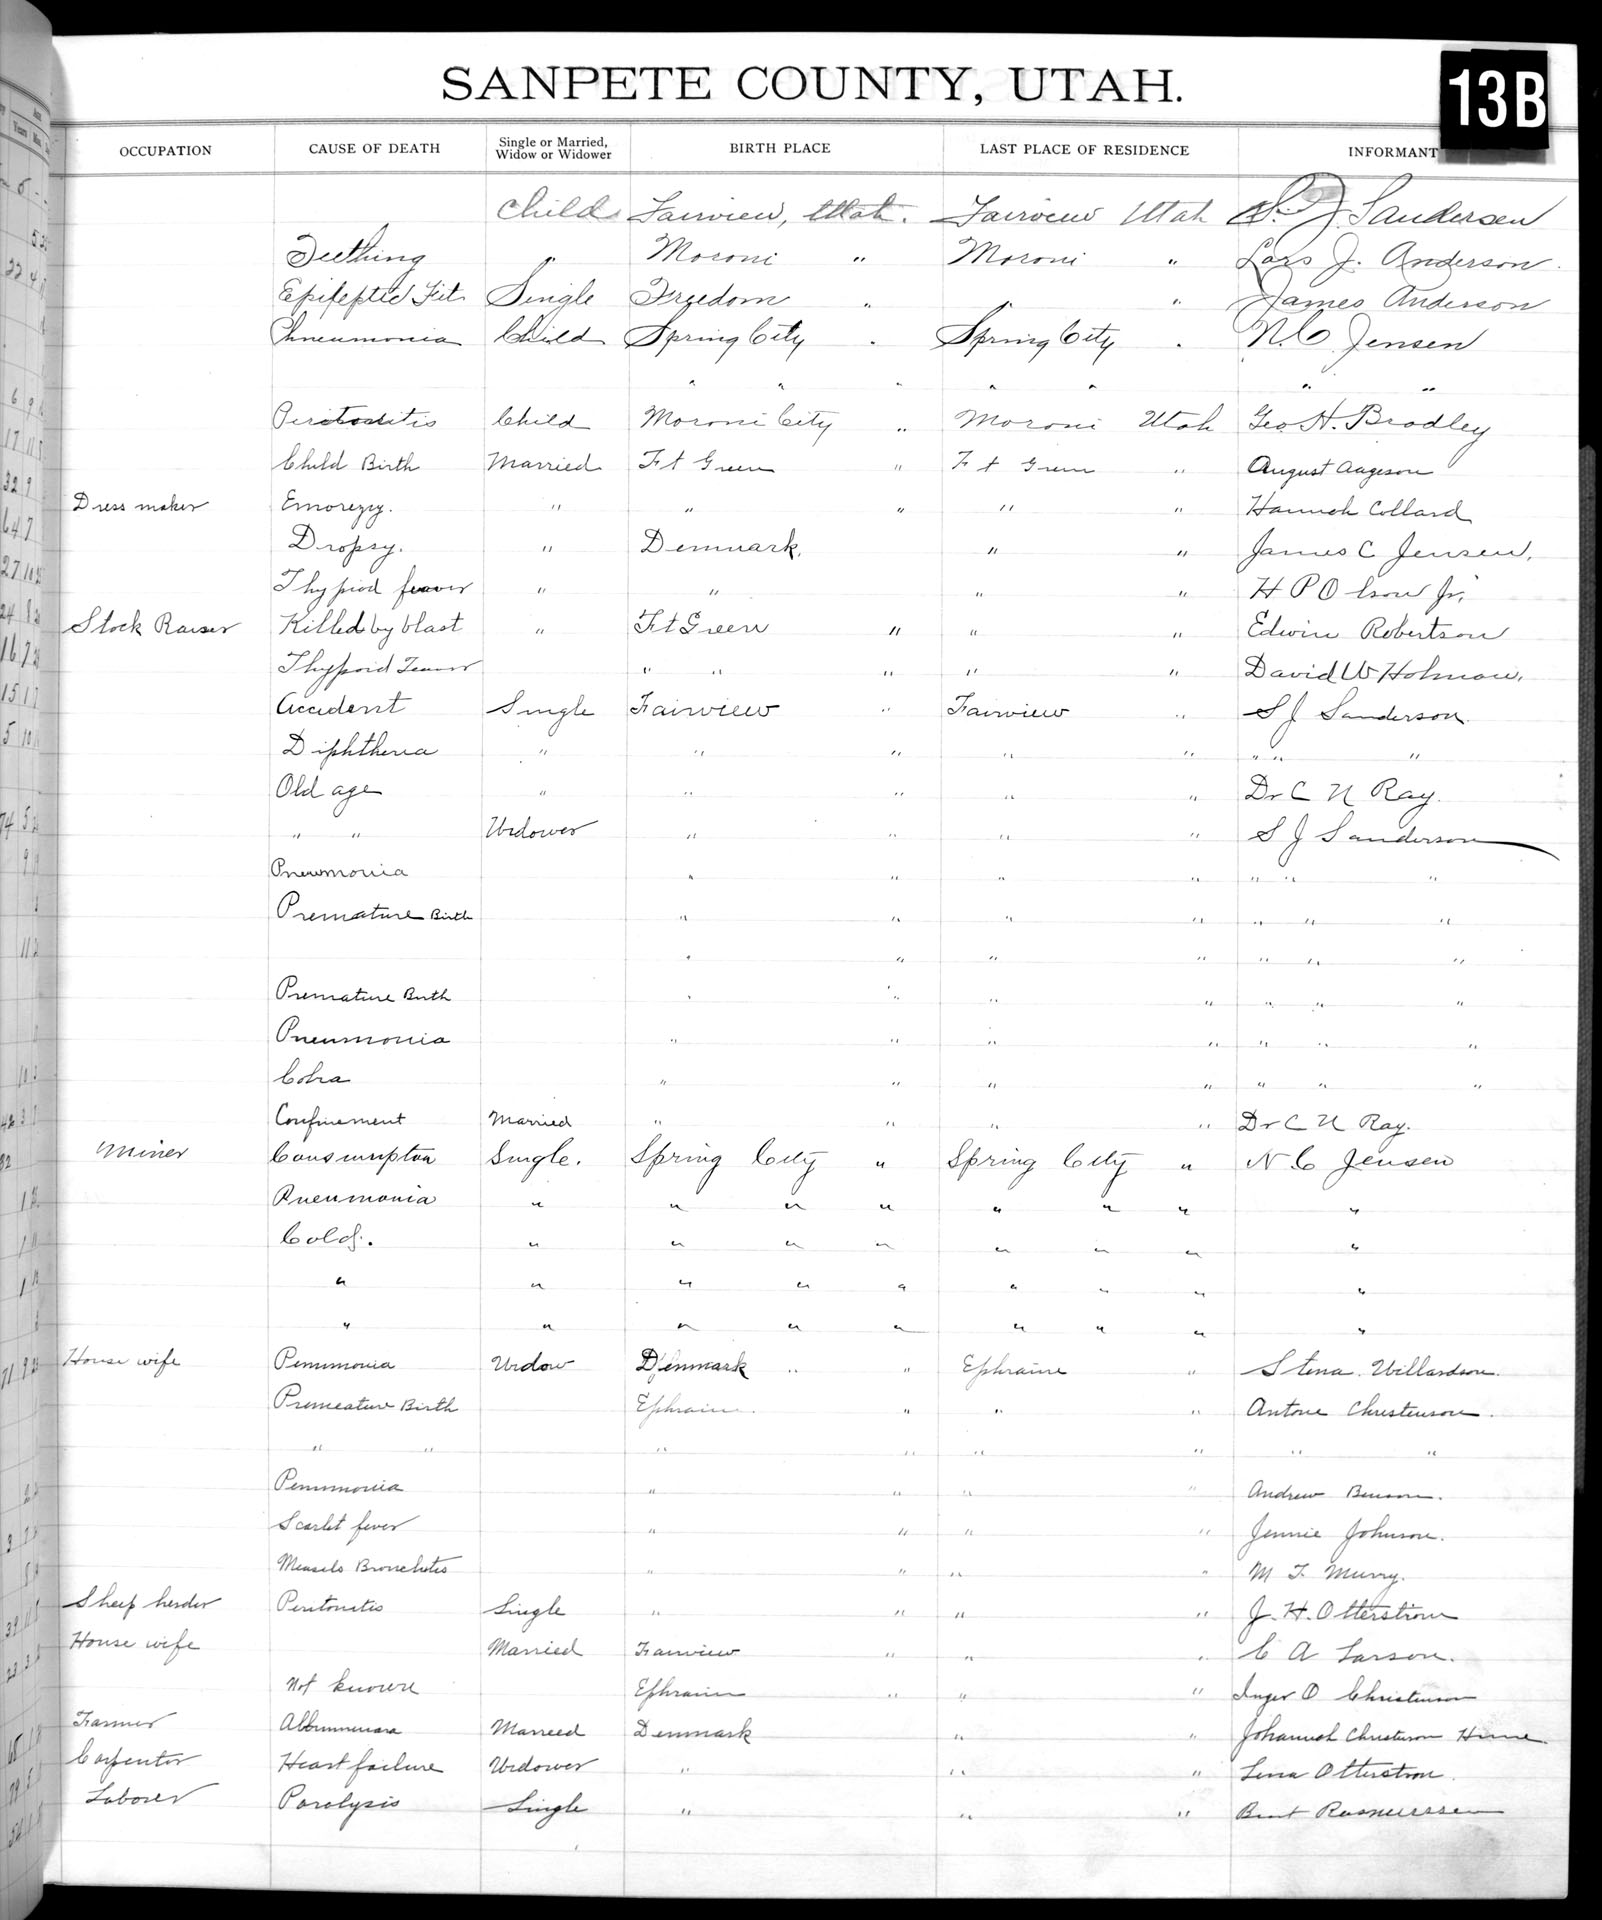 SANPETE COUNTY, UTAH.
13B
OCCUPATION CAUSE OF DEATH Single or Married, Widow or Widower BIRTH PLACE LAST PLACE OF RESIDENCE INFORMANT
Child Fairview, Utah. Fairview Utah S. J. Sandersen
Teething " Moroni " Moroni " Lars J. Anderson.
Epileptic Fits Single Freedom " " " James Anderson
Phneumonia Child Spring City " Spring City " N. C. Jensen
" " " " " " "
Peritonitis Child Moroni City " Moroni Utah Geo H. Bradley
Child Birth Married Ft Green " Ft Green " August Aageson
Dress maker Emorezy. " " " " " Hannah Collard
Dropsy. " Denmark. " " James C Jensen.
Thypiod feaver " " " " H P Olson Jr.
Stock Raiser Killed by blast " Ft Green " " " Edwin Robertson
Thypoid " " " " " David W Holman.
Accident Single Fairview " Fairview " S J Sanderson
Diphtheria " " " " " " " "
Old age " " " " " Dr C N Ray.
" " Widower " " " " S J Sanderson
Pneumonia " " " " " " "
Premature Birth " " " " " " "
" " " " " " "
Premature Birth " " " " " " "
Pneumonia " " " " " " "
" " " " " " "
Confinement Married " " " " Dr C N Ray.
Miner Consumption Single. Spring City " Spring City " N C Jensen
Pneumonia " " " " " " " "
Cold. " " " " " " " "
" " " " " " " " "
" " " " " " " " "
House wife Penmmonia Widow Denmark " " Ephraim " Stena Willardson.
Premeature Birth Ephraim. " " " Antone Christenson.
" " " " " " " "
Penmmonia " " " " Andrew Benson.
Scarlet fever " " " " Jennie Johnson.
Measels Bronchetis " " " " M F Murry.
Sheep herder Peritonitis Single " " " " J. H. Otterstrom
House wife Married Fairview " " " C A Larson.
Not known Ephraim " " " Inger O Christenson
Farmer Married Denmark " " Johannah Christenson
Carpenter Heart failure Widower " " " Lena Otterstrom.
Laborer Paralysis Single " " " Rasmussen